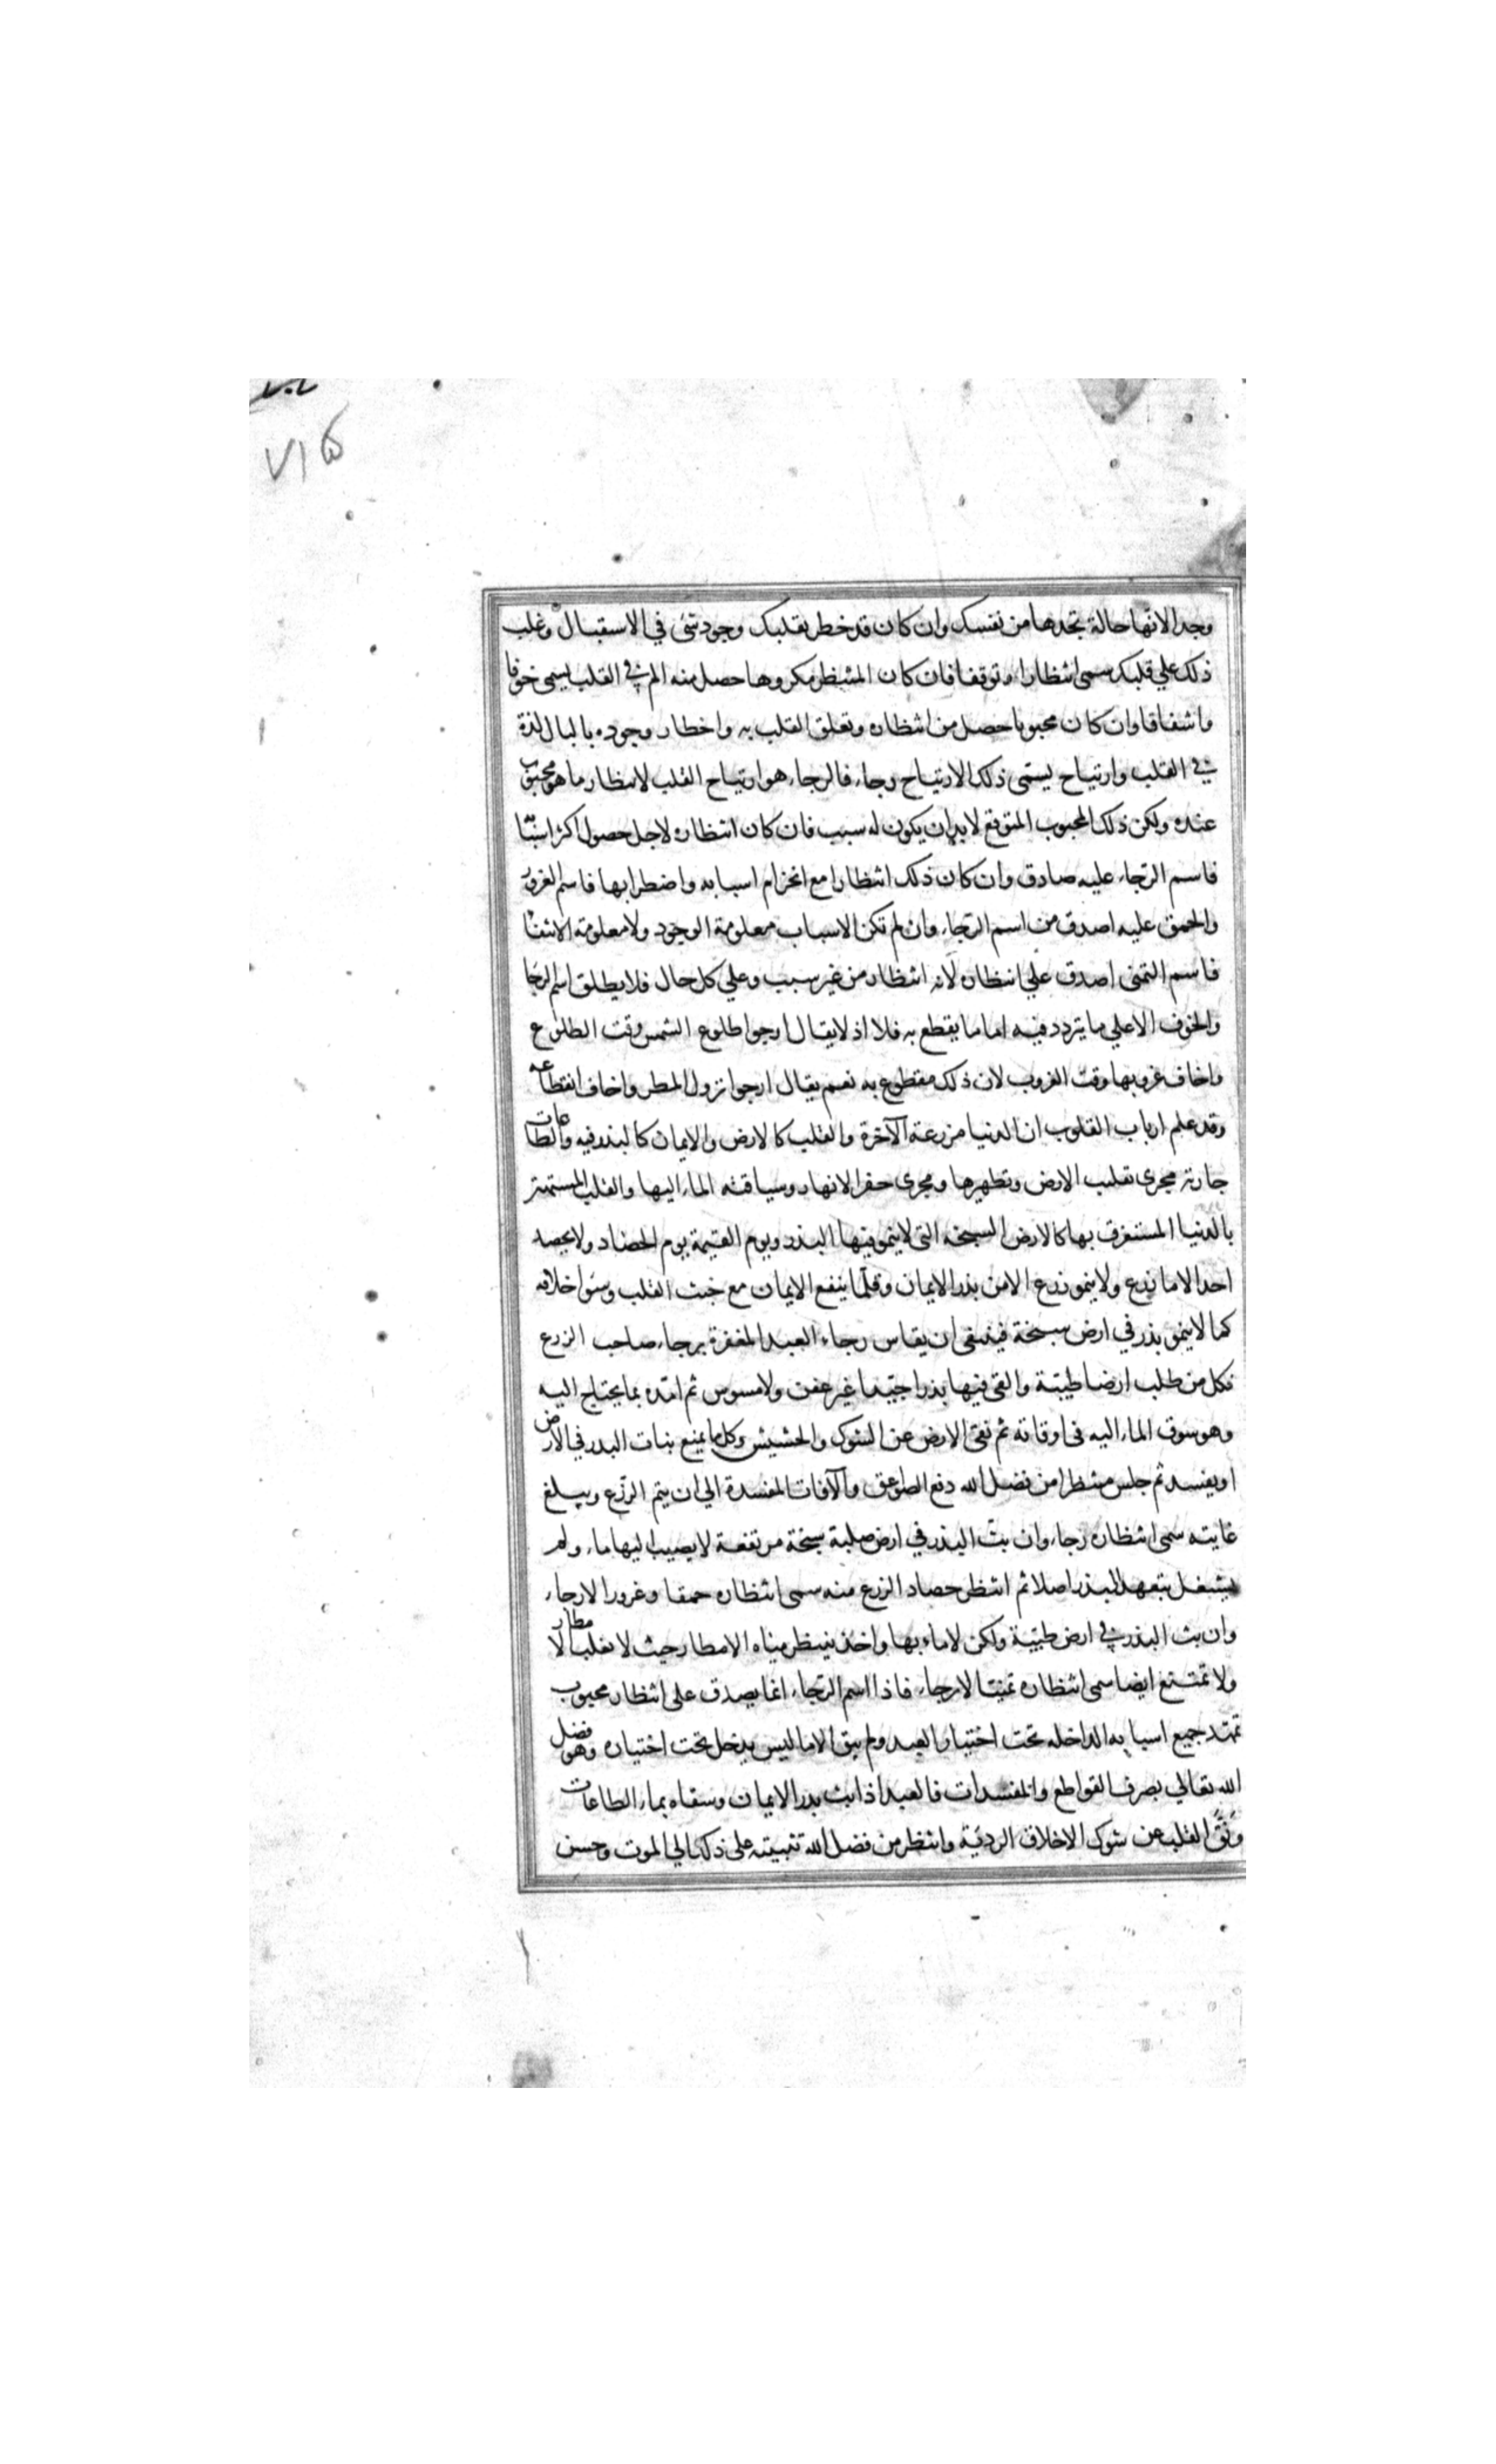 وجدا لانها حالة تجدها من نفسك وان كان قد خطر بقلبك وجود شئ في الاستقبال وغلب
ذلك علي قلبك سمى انتظارا وتوقفا فان كان المنتظر مكروها حصل منه الم في القلب يسمى خوفا
واشفاقا وان كان محبوبا حصل من انتظاره وتعلق القلب به واخطار وجوده بالبال لذة
في القلب وارتياح يسمى ذلك الارتياح رجاء فالرجاء هو ارتياح القلب لانتظار ما هو محبوب
عنده ولكن ذلك المحبوب المتوقع لابد ان يكون له سبب فان كان انتظاره لاجل حصول اكثر اسبابه
فاسم الرجاء عليه صادق وان كان ذلك انتظارا مع انخرام اسبابه واضطرابها فاسم الغرور
والحمق عليه اصدق من اسم الرجاء وان لم تكن الاسباب معلومة الوجود ولا معلومة الانتفا
فاسم التمنى اصدق علي انتظاره لانه انتظار من غير سبب وعلي كل حال فلا يطلق اسم الرجا
والخوف الا علي ما يتردد فيه اما ما يقطع به فلا اذ لا يقال ارجوا طلوع الشمس وقت الطلوع
واخاف غروبها وقت الغروب لان ذلك مقطوع به نعم يقال ارجوا نزول المطر واخاف انقطاعه
وقد علم ارباب القلوب ان الدنيا مزرعة الآخرة والقلب كالارض والايمان كالبذر فيه والطاعات
جارية مجرى تقليب الارض وتطهيرها ومجرى حفر الانهار وسياقة الماء اليها والقلب المستهتر
بالدنيا المستغرق بها كالارض السبخه التى لا ينمو فيها البذر ويوم القيمة يوم الحصاد ولا يحصد
احد الا ما زرع ولا ينمو زرع الا من بذر الايمان وقلما ينفع الايمان مع خبث القلب وسؤ اخلاقه
كما لا ينمو بذر في ارض سبخة فينبغى ان يقاس رجاء العبد المغفرة برجاء صاحب الزرع
فكل من طلب ارضا طيبة والقى فيها بذرا جيدا غير عفن ولا مسوس ثم امده بما يحتاج اليه
وهو سوق الماء اليه فى اوقاته ثم نقى الارض عن الشوك والحشيش وكل ما يمنع نبات البذر في الارض
او يفسد ثم جلس منتظرا من فضل الله دفع الصواعق والآفات المفسدة الي ان يتم الزرع ويبلغ
غايته سمى انتظاره رجاء وان بث البذر في ارض صلبة سبخة مرتفعة لا يصيب اليها ماء ولم
يشغل بتعهد البذر اصلا ثم انتظر حصاد الزرع منه سمى انتظاره حمقا وغرورا لا رجاء
وان بث البذر في ارض طيبة ولكن لا ماء بها واخذ ينتظر مياه الامطار حيث لا تغلب الامطار
ولا تمتنع ايضا سمى انتظاره تمنيا لا رجاء فاذا اسم الرجاء انما يصدق على انتظار محبوب
تمهد جميع اسبابه الداخله تحت اختيار العبد ولم يبق الا ما ليس يدخل تحت اختياره وهو فضل
الله تعالي بصرف القواطع والمفسدات فالعبد اذا بث بذر الايمان وسقاه بماء الطاعات
ونقى القلب عن شوك الاخلاق الردية وانتظر من فضل الله تثبيته على ذلك الي الموت وحسن